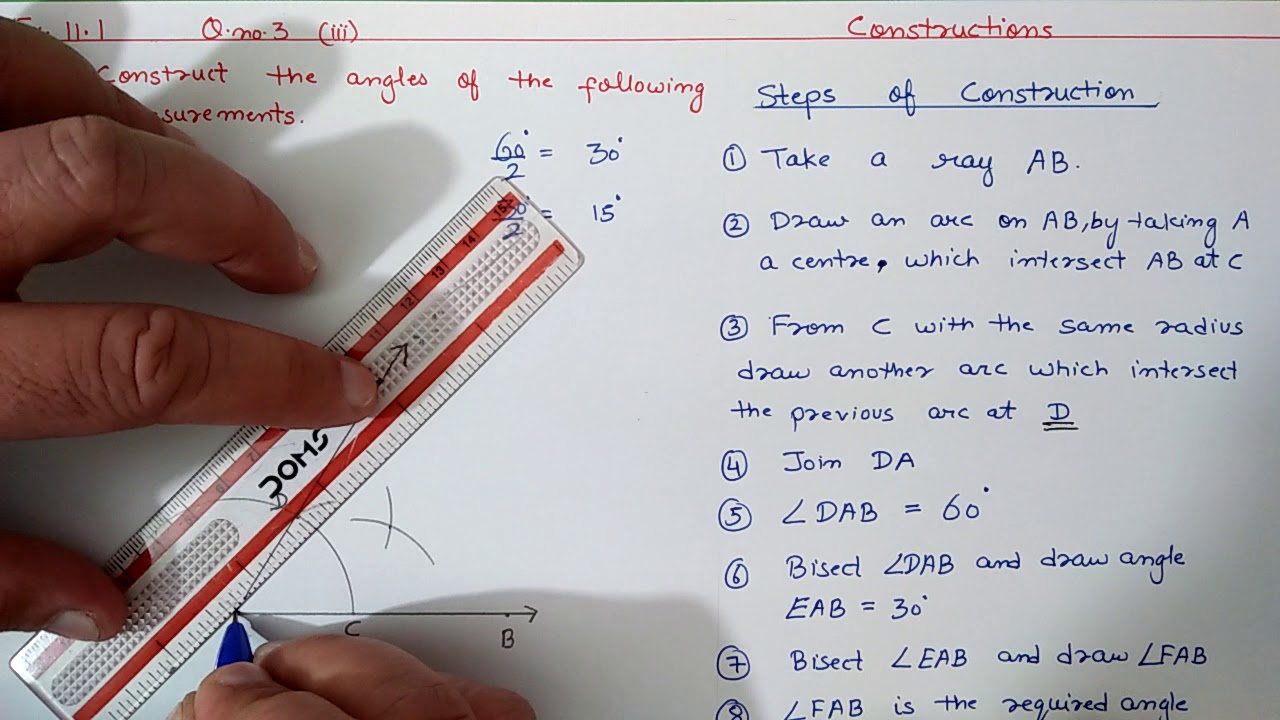 11.1 Q.no.3 (iii)
Constructions
Construct the angles of the following
surements.
60°/2 = 30°
30°/2 = 15°
Steps of Construction
① Take a ray AB.
② Draw an arc on AB, by taking A
a centre, which intersect AB at C
③ From C with the same radius
draw another arc which intersect
the previous arc at D
④ Join DA
⑤ ∠DAB = 60°
⑥ Bisect ∠DAB and draw angle
EAB = 30°
⑦ Bisect ∠EAB and draw ∠FAB
⑧ ∠FAB is the required angle
DOMS
15
14
13
12
11
7
6
D
C
B